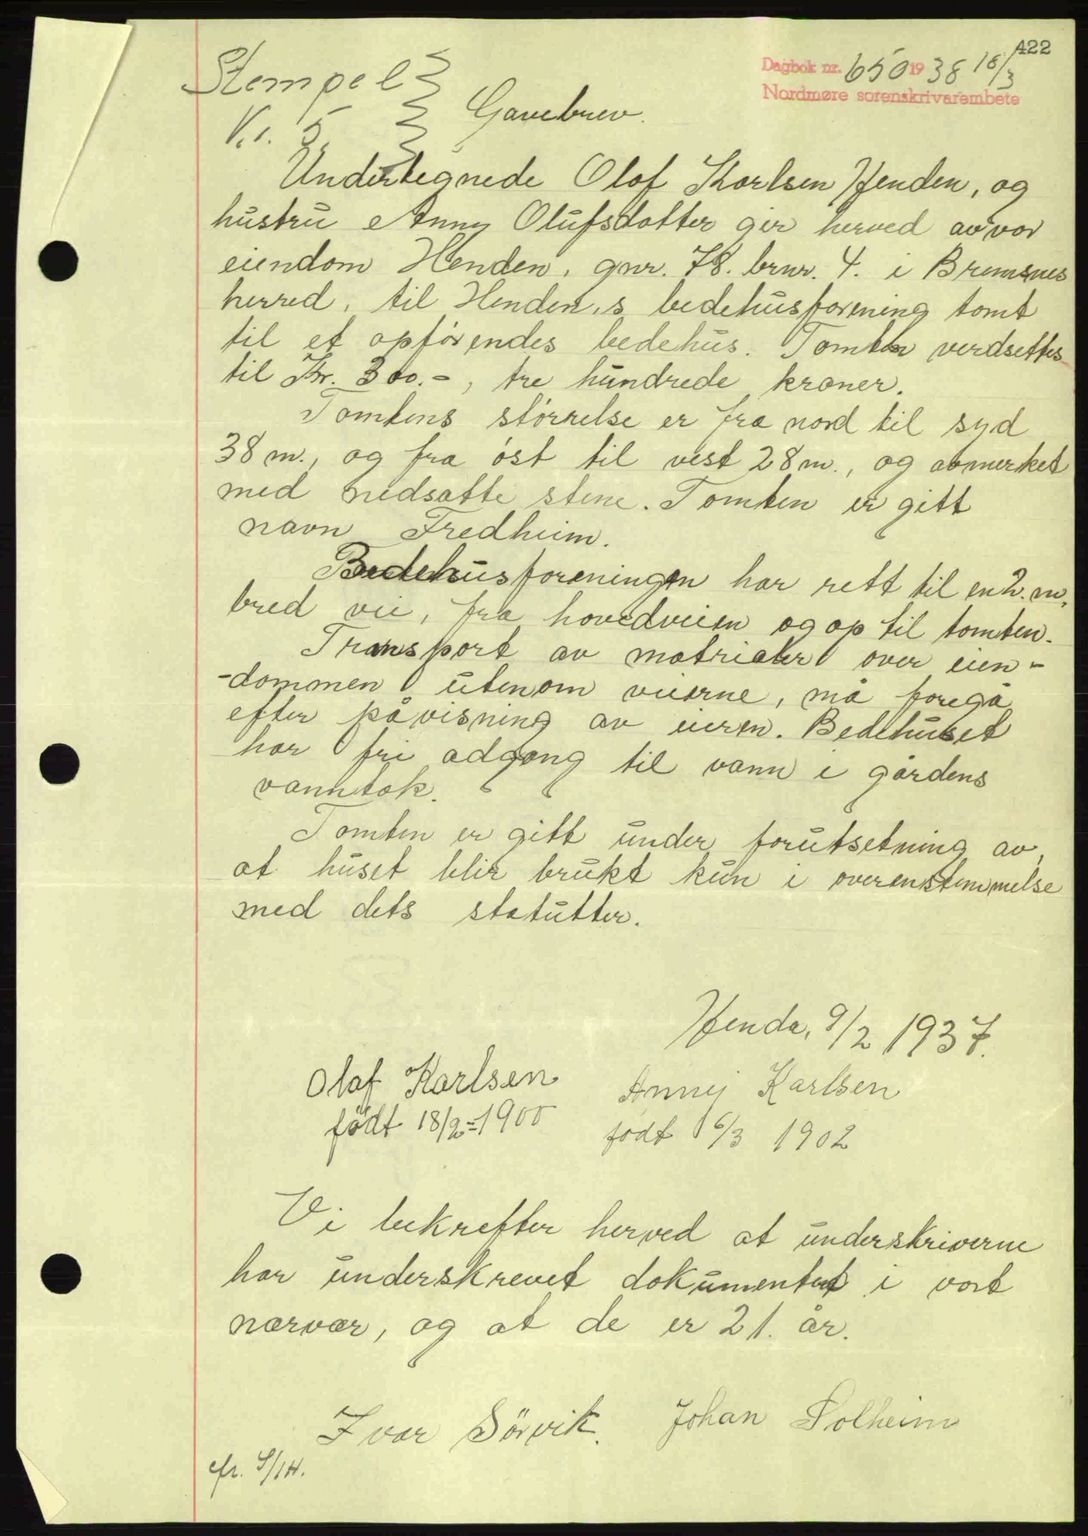 422
Dagbok nr. 650 1938 18/3
Nordmøre sorenskrivarembete
Stempel
Kr. 5.
Gavebrev.
Undertegnede Olaf Karlsen Henden, og
hustru Anny Olufsdatter gir herved av vor
eiendom Henden, gnr. 78. brnr. 4. i Bremsnes
herred, til Henden,s bedehusforening tomt
til et opførendes bedehus. Tomten verdsettes
til Kr. 300.-, tre hundrede kroner.
Tomtens størrelse er fra nord til syd
38 m., og fra øst til vest 28 m., og avmerket
med nedsatte stene. Tomten er gitt
navn Fredheim.
Bedehusforeningen har rett til en 2. m.
bred vei, fra hovedveien og op til tomten.
Transport av matrialer over eien-
-dommen utenom veierne, må foregå
efter påvisning av eieren. Bedehuset
har fri adgang til vann i gårdens
vanntak.
Tomten er gitt under forutsetning av,
at huset blir brukt kun i overenstemmelse
med dets statutter.
Henda, 9/2 1937.
Olaf Karlsen Anny Karlsen
født 18/2-1900 født 6/3 1902
Vi bekrefter herved at underskriverne
har underskrevet dokumentet i vort
nærvær, og at de er 21. år.
Ivar Sörvik. Johan Solheim